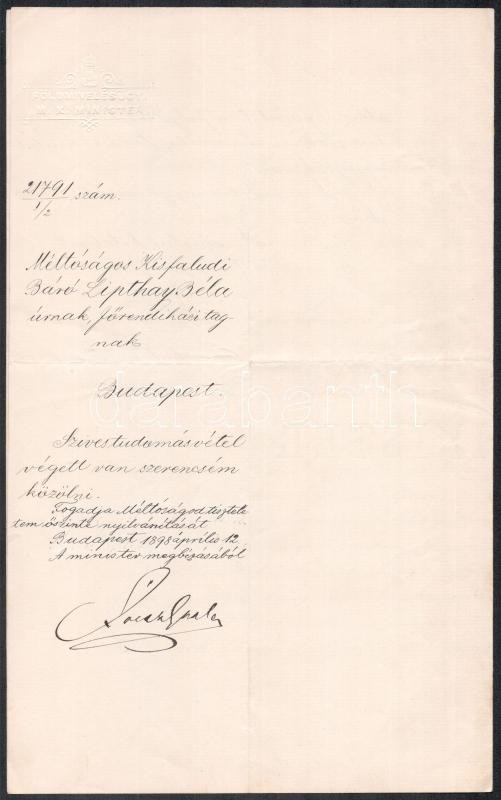 FÖLDMIVELÉSÜGYI
M. K. MINISTER
21791 szám.
1/2
Méltóságos Kisfaludi
Báró Lipthay Béla
úrnak, főrendiházi tag-
nak
Budapest.
darabanth
Szives tudomásvétel
végett van szerencsém
közölni.
Fogadja Méltóságod tisztele
tem őszinte nyilvánítását
Budapest 1898 április 12.
A minister megbizásából